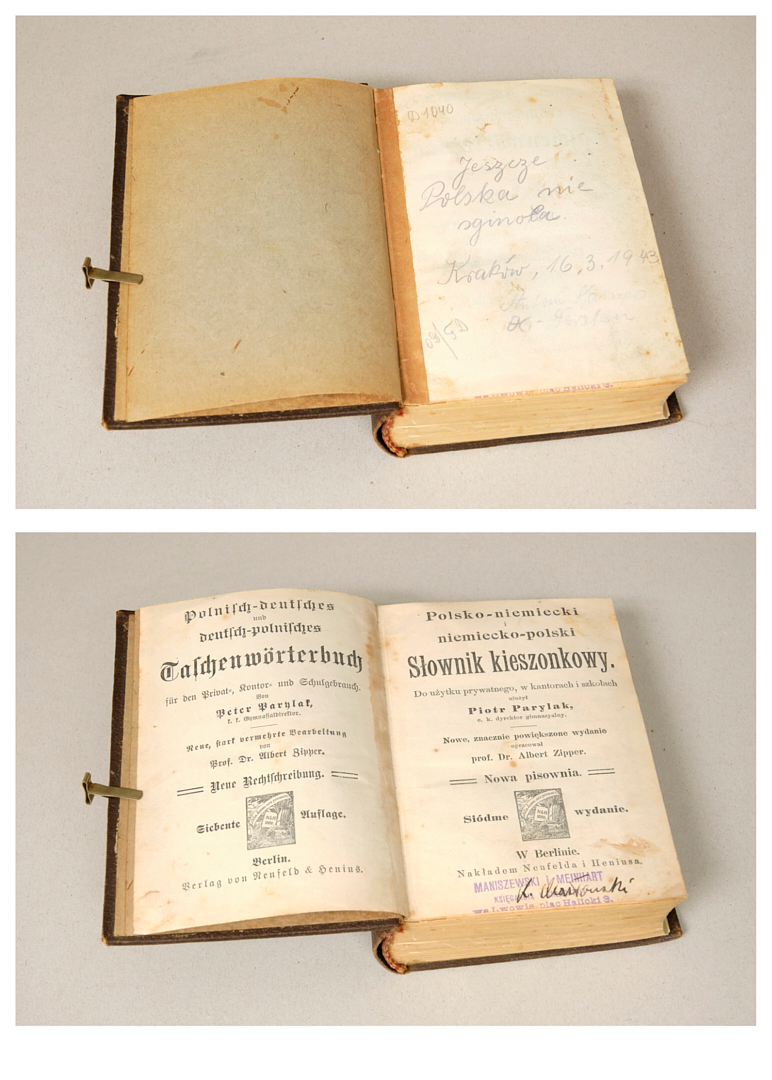 D1040
Jeszcze
Polska nie
sginoła.
Kraków, 16.3.1943
we Lwowie, plac Halicki 3.
Polnisch-deutsches
und
deutsch-polnisches
Taschenwörterbuch
für den Privat-, Kontor- und Schulgebrauch.
Von
Peter Parylak,
k. k. Gymnasialdirektor.
Neue, stark vermehrte Bearbeitung
von
Prof. Dr. Albert Zipper.
Neue Rechtschreibung.
Siebente Auflage.
Berlin.
Verlag von Neufeld & Henius.
Polsko-niemiecki
i
niemiecko-polski
Słownik kieszonkowy.
Do użytku prywatnego, w kantorach i szkołach
ułożył
Piotr Parylak,
c. k. dyrektor gimnazyalny.
Nowe, znacznie powiększone wydanie
opracował
prof. Dr. Albert Zipper.
Nowa pisownia.
Siódme wydanie.
W Berlinie.
Nakładem Neufelda i Heniusa.
MANISZEWSKI i MEINHART
we Lwowie, plac Halicki 3.